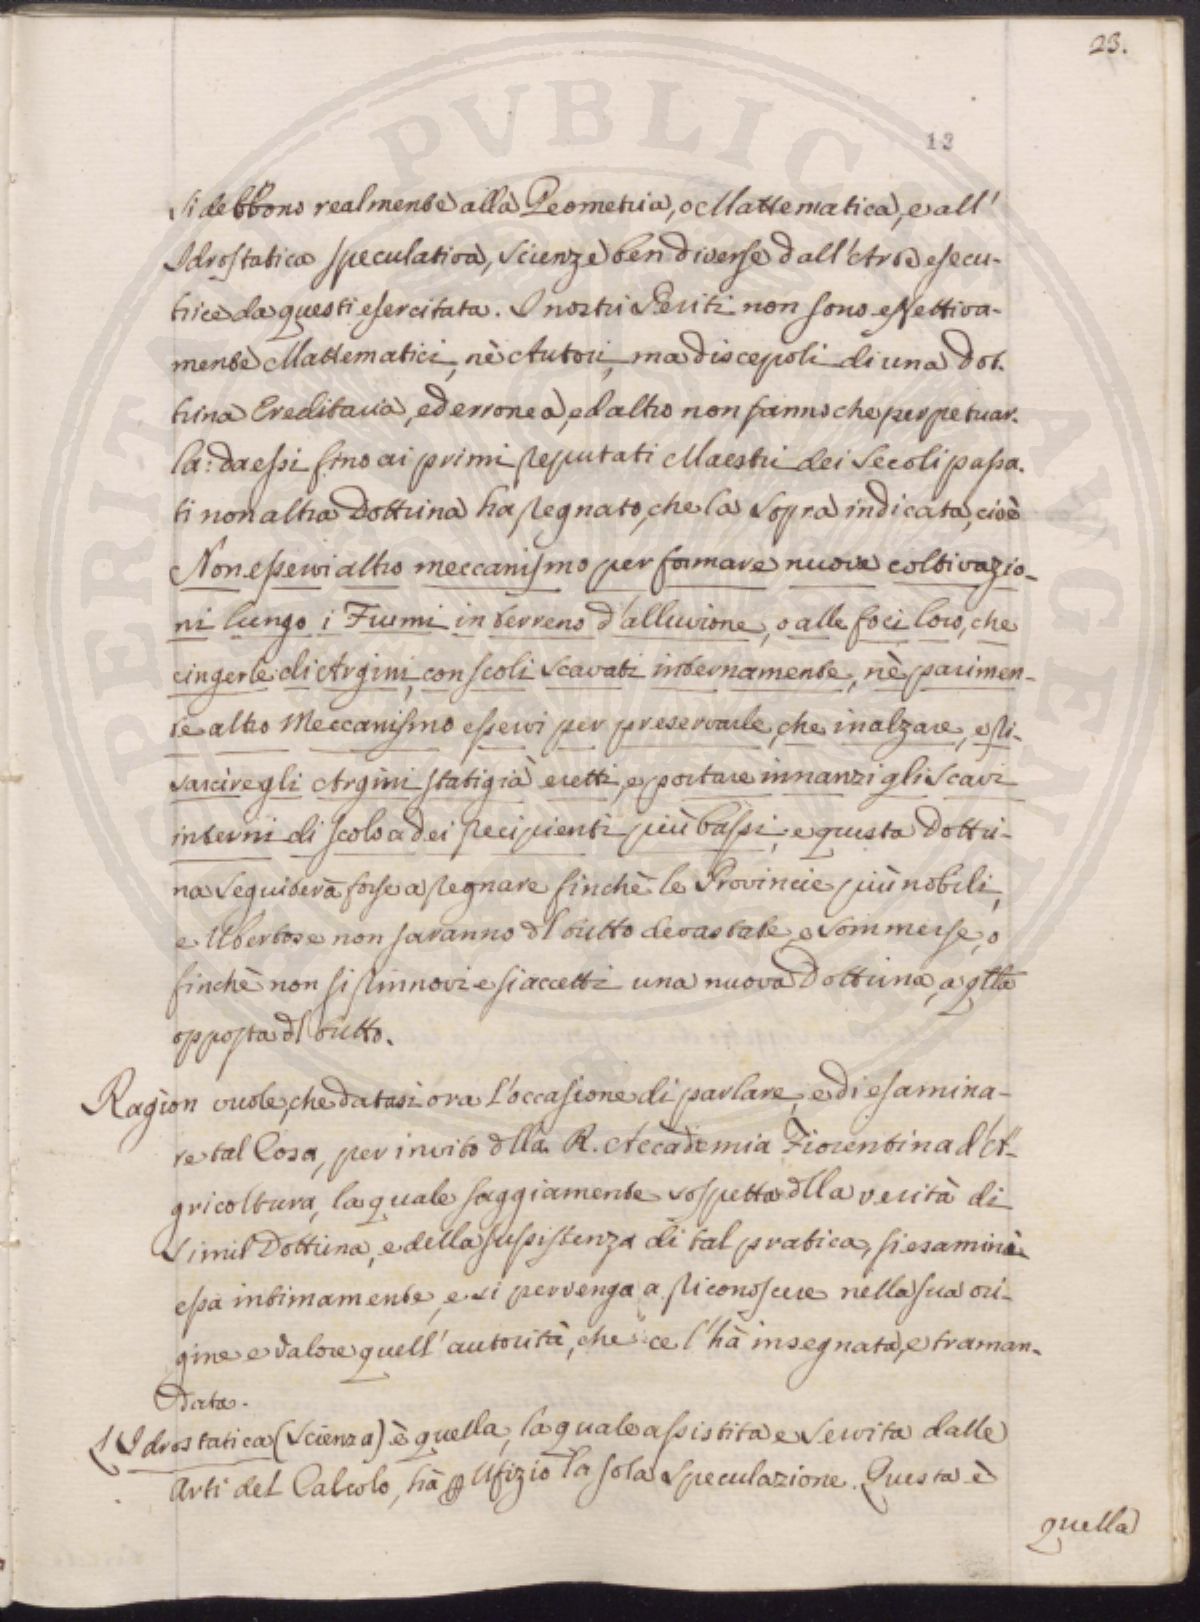 23.
12
si debbono realmente alla Geometria, o Mattematica, e all'
Idrostatica speculativa, scienze ben diverse dall'Arte esecu-
trice da questi esercitata. I nostri Periti non sono effettiva-
mente Mattematici, nè Autori, ma discepoli di una dot-
trina Ereditaria, ed erronea, ed altro non fanno che perpetuar-
la: da essi fino ai primi reputati Maestri dei secoli passa-
ti non altra Dottrina ha regnato, che la sopra indicata, cioè
Non esservi altro meccanismo per formare nuove coltivazio-
ni lungo i Fiumi in terreno d'alluvione, o alle foci loro, che
cingerle di Argini, con scoli scavati internamente, nè parimen-
te altro Meccanismo esservi per preservarle, che inalzare, e ri-
sarcire gli Argini stati già eretti, e portare innanzi gli scavi
interni di scolo a dei recipienti più bassi, e questa Dottri-
na seguiterà forse a regnare finchè le Provincie più nobili,
e Ubertose non saranno dl tutto devastate, e sommerse, o
finchè non si rinnovi e si accetti una nuova Dottrina, a qlla
opposta dl tutto.
Ragion vuole, che datasi ora l'occasione di parlare, e di esamina-
re tal Cosa, per invito dlla R. Accademia Fiorentina d'A-
gricoltura, la quale saggiamente sospetta dlla verità di
simil Dottrina, e della sussistenza di tal pratica, si esamini
essa intimamente, e si pervenga a riconoscere nella sua ori-
gine e valore quell'autorità, che ce l'hà insegnata, e traman-
data.
L'Idrostatica (Scienza) è quella, la quale assistita e servita dalle
Arti del Calcolo, hà p Ufizio la sola speculazione. Questa è
quella